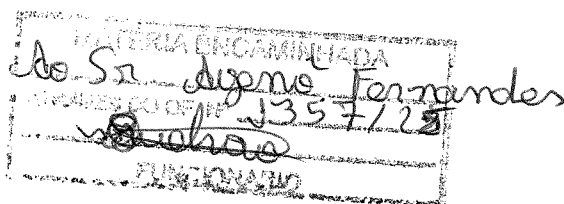 MATÉRIA ENCAMINHADA
Ao Sr Ageno Fernandes
DO OF Nº 1357/25
FUNCIONÁRIO